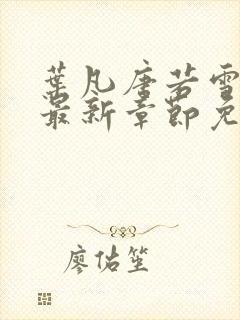 葉凡唐若雪
最新章節免
廖佑笙